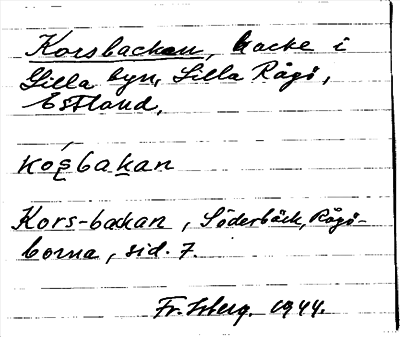 Korsbacken, backe i
Lilla byn, Lilla Rågö,
Estland.
kósbakan
Kors-backan, Söderbäck, Rågö-
borna, sid. 7.
Fr. Isberg. 1944.